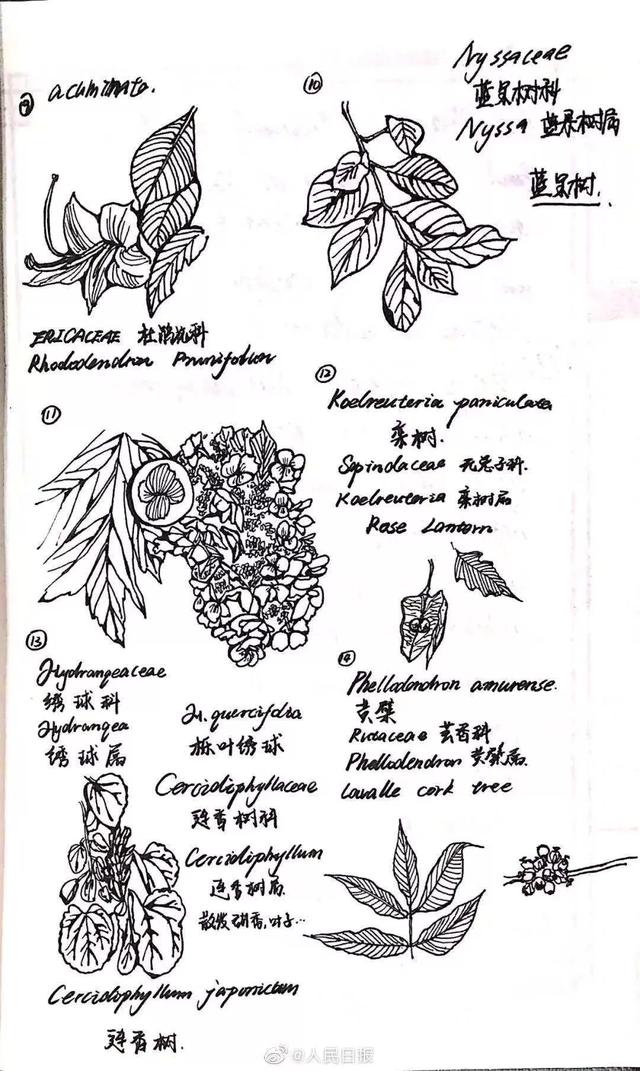 ⑨ acuminata.
ERICACEAE 杜鹃花科
Rhododendron Prunifolium
⑩
Nyssaceae
蓝果树科
Nyssa 蓝果树属
蓝果树.
⑪
⑫
Koelreuteria paniculata
栾树.
Sapindaceae 无患子科.
Koelreuteria 栾树属
Rose Lantern
⑬
Hydrangeaceae
绣球科
Hydrangea
绣球属
H. quercifolia
栎叶绣球
Cercidiphyllaceae
连香树科
Cercidiphyllum
连香树属
散发甜香,叶子...
Cercidiphyllum japonicum
连香树.
⑭
Phellodendron amurense.
黄檗
Rutaceae 芸香科
Phellodendron 黄檗属
Lavalle cork tree
@人民日报